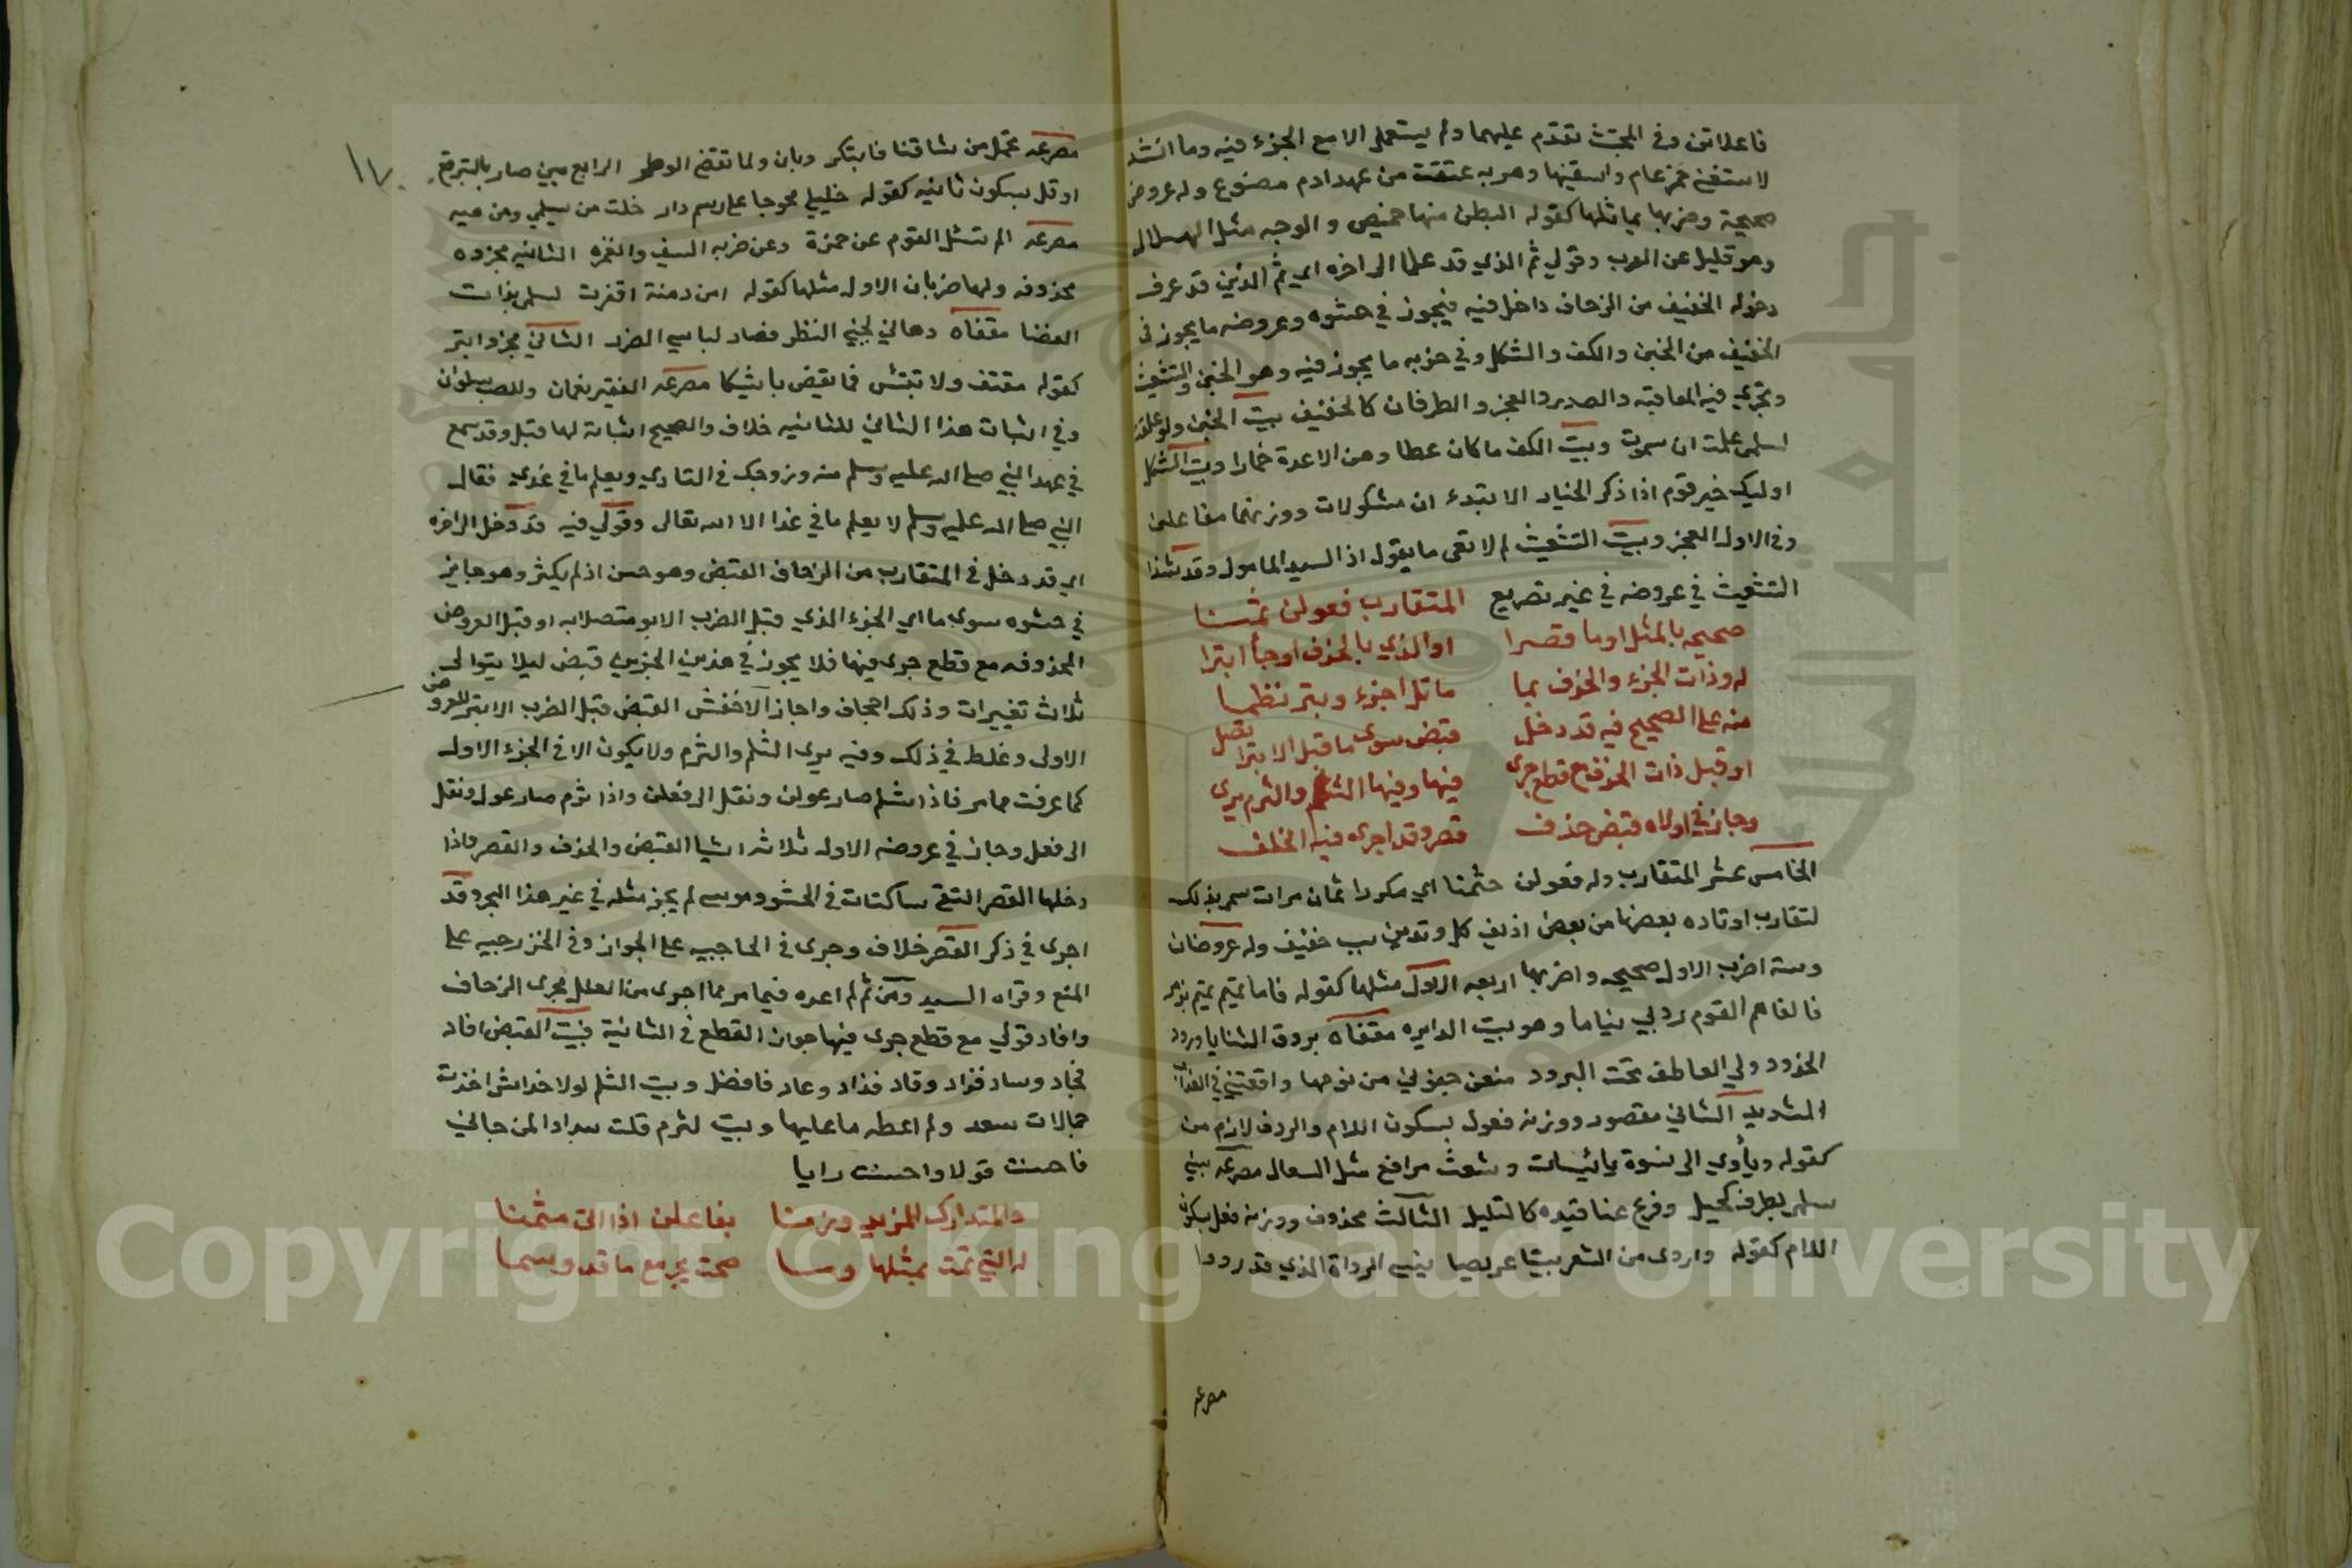 فاعلاتن وفي المجتث تقدم عليهما ولم يستعمل الا مع الجزء فيه وما انشد
لاستفنى خمر عام واسقنيها وهربه عتقت من عهد ادم مصنوع وله عروض
صحيحة وضربها يماثلها كقوله البطن منها خميص والوجه مثل الهلال
وهو قليل عن العرب وقولي ثم الذي قد علما الى اخره اي ثم الذين قد عرف
دخوله الخفيف من الزحاف داخل فيه فيجوز في حشوه وعروضه ما يجوز في
الخفيف من الخبن والكف والشكل وفي ضربه ما يجوز فيه وهو الخبن والتشعيث
وتجري فيه المعاقبة والصدر والعجز والطرفان كالخفيف بيت الخبن ولو علقت
لسلمى علمت ان سموت وبيت الكف ما كان عطاوهن الا عدة ضمارا وبيت الشكل
اوليك خير قوم اذا ذكر الخيار الابتدء ان مشكولات ووزنهما مفاعل
وفي الاول العجز وبيت التشعيث لم لا تعي ما يقول اذ السيد المامول وقد شذ
التشعيث في عروضه في غير تصريع المتقارب فعولن ثمنا
صحيحه بالمثل او ما قصرا او الذي بالحذف او جا ابترا
له وذات الجزء والحذف بما ماثل اجزء وبتر نظما
منه على الصحيح فيه قد دخل قبض سوى ما قبل الابترا تصل
او قبل ذات الحذف مع قطع جرى فيها وفيها الثلم والثرم يرى
وجاز في اولاه قبض حذف قصر وقد اجرى فيه الخلف
الخامس عشر المتقارب وله فعولن حثمنا اي مكررا ثمان مرات سمي بذلك
لتقارب اوتاده بعضها من بعض اذ بين كل وتدين سبب خفيف وله عروضان
وستة اضرب الاول صحيحه واضربها اربعه الاول مثلها كقوله فاما تميم تميم بن مر
فالفاهم القوم روبي نياما وهو بيت الدايره مقفاه بروق الثنايا ورود
الخدود ولي العاطف تحت البرود منعن جفوني من نومها واقعتني في العذاب
الشديد الثاني مقصور ووزنه فعول بسكون اللام والردف لازم من
كقوله وياوي الى نسوة بائيسات وشعث مراضع مثل السعال مصرعه سبني
سلمى بطرف كحيل وفرع عناقيده كالتليل الثالث محذوف ووزنه فعل بسكون
اللام كقوله واروى من الشعر بيتا عويصا ينسي الرواة الذي قد رووا
مصرعه
مصرعه تحمل من شاقنا فابتكر وبان ولما تقض الوطر الرابع صار بالبتر فع
او قل بسكون ثانيه كقوله خليلي عوجا على رسم دار خلت من سليمى ومن ميه
مصرعه الم تسئل القوم عن حمزة وعن ضربه السيف والغمزه الثانيه مجزوه
محذوفه ولها ضربان الاول مثلها كقوله امن دمنة اقفرت لسلمى بذات
الغضا مقفاه دهاني لجني النظر فصار لباسي الضرر الثاني مجزو ابتر
كقوله مقتف ولا تبتئس فما يقض ياتيكا مصرعه الفقير نعمان وللصب سلوان
وفي اثبات هذا الثاني للثانيه خلاف والصحيح اثباته لها قبل وقد سمع
في عهد النبي صلى الله عليه وسلم منه وزوجك في النادي ويعلم ما في غدي فقال
النبي صلى الله عليه وسلم لا يعلم ما في غدا الا الله تعالى وقولي فيه قد دخل الى اخره
اي قد دخل في المتقارب من الزحاف القبض وهو حسن اذ لم يكثر وهو جايز
في حشوه سوى ما اي الجزء الذي قبل الضرب الابتر متصلا به او قبل العروض
المحذوفه مع قطع جرى فيها فلا يجوز في هذين الجزين قبض ليلا يتوالى
ثلاث تغييرات وذلك اجحاف واجاز الاخفش القبض قبل الضرب الابتر للعروض
الاولى وغلط في ذلك وفيه يرى الثلم والثرم ولا يكون الا في الجزء الاول
كما عرفت مما مر فاذا ثلم صار عولن ونقل الى فعلن واذا ثرم صار عول ونقل
الى فعل وجاز في عروضه الاولى ثلاثه اشيا القبض والحذف والقصر واذا
دخلها القصر التقى ساكنان في الحشو وموسى لم يجز مثله في غير هذا البحر وقد
اجرى في ذكر القصر خلاف وجرى في الحاجبيه على الجواز وفي الخزرجيه على
المنع وقراه السيد ومن ثم لم اعده فيما مر مما اجرى من العلل مجرى الزحاف
وافاد قولي مع قطع جرى فيها جواز القطع في الثانية فبيت القبض افاد
فجاد وساد فزاد وقاد فذاد وعاد فافضل وبيت الثلم لولا خداش اخذت
جمالات سعد ولم اعطه ما عليها وبيت لثرم قلت سدادا لمن جاني
فاحسنت قولا واحسنت رايا
والمتدارك المزيد وزمنا بفاعلن اذا اتى مثمنا
له التي تمت بمثلها وما صحت بجرء مع ما قد وسما